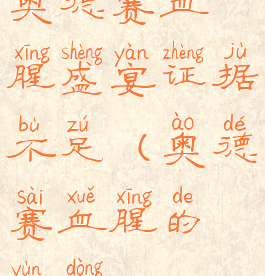 奥德赛血
xīng shèng yàn zhèng jù
腥盛宴证据
bù zú ào dé
不足（奥德
sài xuě xīng de
赛血腥的
yùn dòng